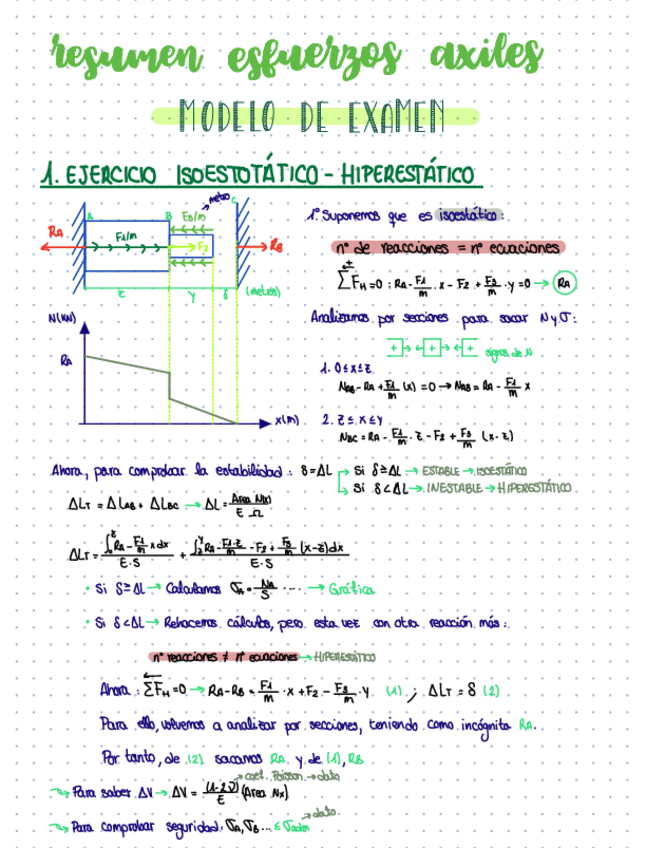 resumen esfuerzos axiles
MODELO DE EXAMEN
1. EJERCICIO ISOESTOTÁTICO - HIPERESTÁTICO
A B C
metro
RA F1/m F3/m F2 RB
z y δ (metros)
1º Suponemos que es isoestático:
nº de reacciones = nº ecuaciones
ΣFH=0 : RA - F1/m · x - F2 + F3/m · y = 0 → RA
Analizamos por secciones para sacar N y σ:
+ + + signos de N
N(KN)
RA
x(m)
1. 0≤x≤z
NAB - RA + F1/m (x) = 0 → NAB = RA - F1/m x
2. z≤x≤y
NBC = RA - F1/m · z - F2 + F3/m (x-z)
Ahora, para comprobar la estabilidad: δ=ΔL → Si δ≥ΔL → ESTABLE → ISOESTÁTICO
Si δ<ΔL → INESTABLE → HIPERESTÁTICO
ΔLT = ΔLAB + ΔLBC → ΔL = Area N(x) / E·Ω
ΔLT = ∫₀ᶻ RA - F1/m x dx / E·S + ∫zʸ RA - F1·z/m - F2 + F3/m (x-z)dx / E·S
· Si δ≥ΔL → Calculamos σA = NA/S .... → Gráfica
· Si δ<ΔL → Rehacemos cálculos, pero esta vez con otra reacción más:
nº reacciones ≠ nº ecuaciones → HIPERESTÁTICO
Ahora: ΣFH=0 → RA-RB = F1/m · x + F2 - F3/m · y (1) ; ΔLT = δ (2)
Para ello, volvemos a analizar por secciones, teniendo como incógnita RA.
Por tanto, de (2) sacamos RA y de (1), RB
→ coef. Poisson → dato
Para saber ΔV → ΔV = (1-2ν)/E (Area Nx)
→ dato
Para comprobar seguridad, σA, σB... ≤ σadm